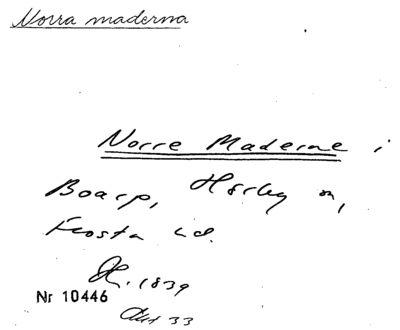 Norra maderna
Norre Maderne i
Boarp, Hörby sn,
Frosta hd.
1839
Nr 10446
33